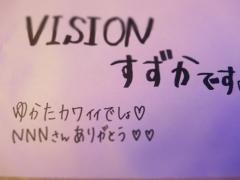 VISION
すずかです
ゆかたカワイイでしょ♡
NNNさんありがとう♡♡